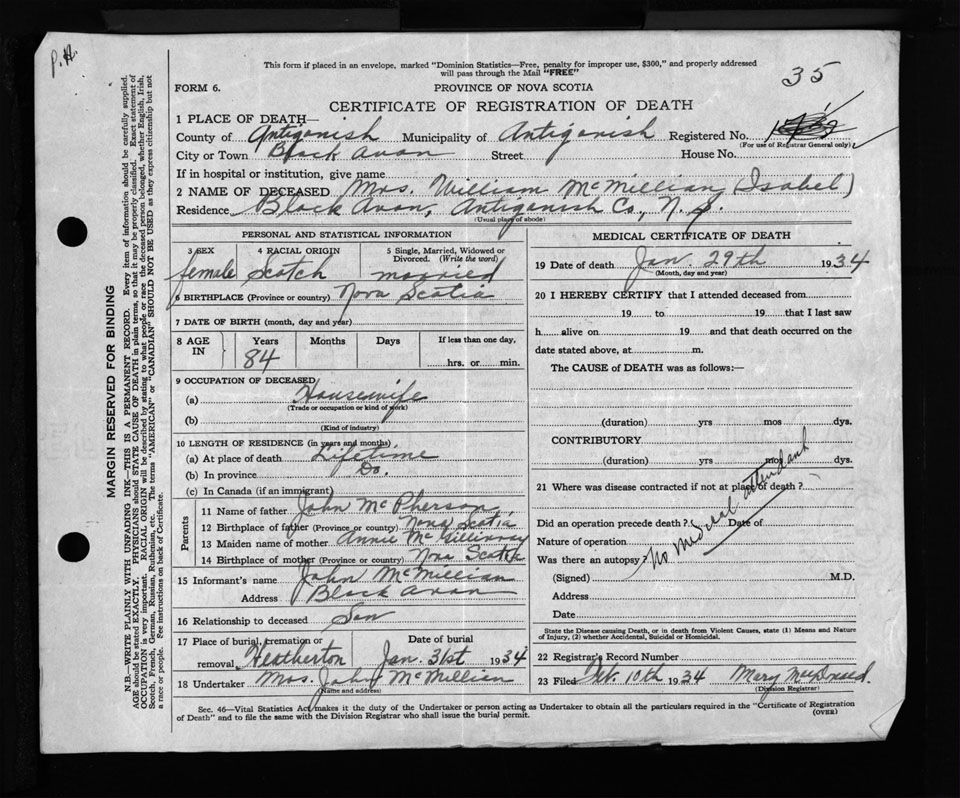 P.H.
35
This form if placed in an envelope, marked "Dominion Statistics—Free, penalty for improper use, $300," and properly addressed
will pass through the Mail "FREE"
FORM 6.
PROVINCE OF NOVA SCOTIA
CERTIFICATE OF REGISTRATION OF DEATH
1 PLACE OF DEATH—
County of Antigonish Municipality of Antigonish Registered No.
(For use of Registrar General only)
City or Town Black Avon Street House No.
If in hospital or institution, give name
2 NAME OF DECEASED Mrs. William McMillian, (Isabel)
Residence Black Avon, Antigonish Co., N. S.
(Usual place of abode)
PERSONAL AND STATISTICAL INFORMATION
3 SEX 4 RACIAL ORIGIN 5 Single, Married, Widowed or
Divorced. (Write the word)
female Scotch married
6 BIRTHPLACE (Province or country) Nova Scotia
7 DATE OF BIRTH (month, day and year)
8 AGE IN Years Months Days If less than one day,
84 hrs. or min.
9 OCCUPATION OF DECEASED
(a) Housewife
(Trade or occupation or kind of work)
(b)
(Kind of industry)
10 LENGTH OF RESIDENCE (in years and months)
(a) At place of death Lifetime
(b) In province Do.
(c) In Canada (if an immigrant)
Parents
11 Name of father John McPherson,
12 Birthplace of father (Province or country) Nova Scotia
13 Maiden name of mother Annie McGillivray
14 Birthplace of mother (Province or country) Nova Scotia
15 Informant's name John McMillian
Address Black Avon
16 Relationship to deceased Son
17 Place of burial, cremation or Date of burial
removal Heatherton Jan. 31st 1934
18 Undertaker Mrs. John McMillian
(Name and address)
MEDICAL CERTIFICATE OF DEATH
19 Date of death Jan. 29th 1934
(Month, day and year)
20 I HEREBY CERTIFY that I attended deceased from
19 to 19 that I last saw
h alive on 19 and that death occurred on
date stated above, at m.
The CAUSE of DEATH was as follows:—
(duration) yrs mos dys.
CONTRIBUTORY
(duration) yrs mos dys.
21 Where was disease contracted if not at place of death?
Did an operation precede death? Date of
Nature of operation
Was there an autopsy?
No medical attendant
(Signed) M.D.
Address
Date
State the Disease causing Death, or in death from Violent Causes, state (1) Means and Nature
of Injury, (2) whether Accidental, Suicidal or Homicidal.
22 Registrar's Record Number
23 Filed Feb. 10th 1934 Mary MacDonald.
(Division Registrar)
Sec. 46—Vital Statistics Act makes it the duty of the Undertaker or person acting as Undertaker to obtain all the particulars required in the "Certificate of Registration
of Death" and to file the same with the Division Registrar who shall issue the burial permit.
(OVER)
MARGIN RESERVED FOR BINDING
N.B.—WRITE PLAINLY WITH UNFADING INK—THIS IS A PERMANENT RECORD. Every item of information should be carefully supplied.
AGE should be stated EXACTLY. PHYSICIANS should STATE CAUSE OF DEATH in plain terms, so that it may be properly classified. Exact statement of
OCCUPATION is very important. RACIAL ORIGIN will be described by stating to what people or race the deceased person belonged, whether English, Irish,
Scotch, French, German, Russian, Ruthenian, etc. The terms "AMERICAN" or "CANADIAN" SHOULD NOT BE USED as they express citizenship but not
a race or people. See instructions on back of Certificate.